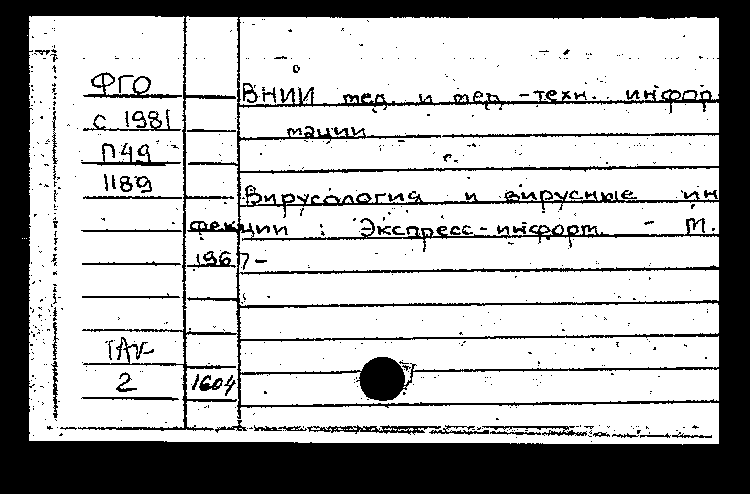 ФГО
с 1981
П49
1189
ВНИИ мед. и мед-техн. инфор
мации
Вирусология и вирусные ин
фекции : Экспресс-информ. - М.
1967-
2
1604